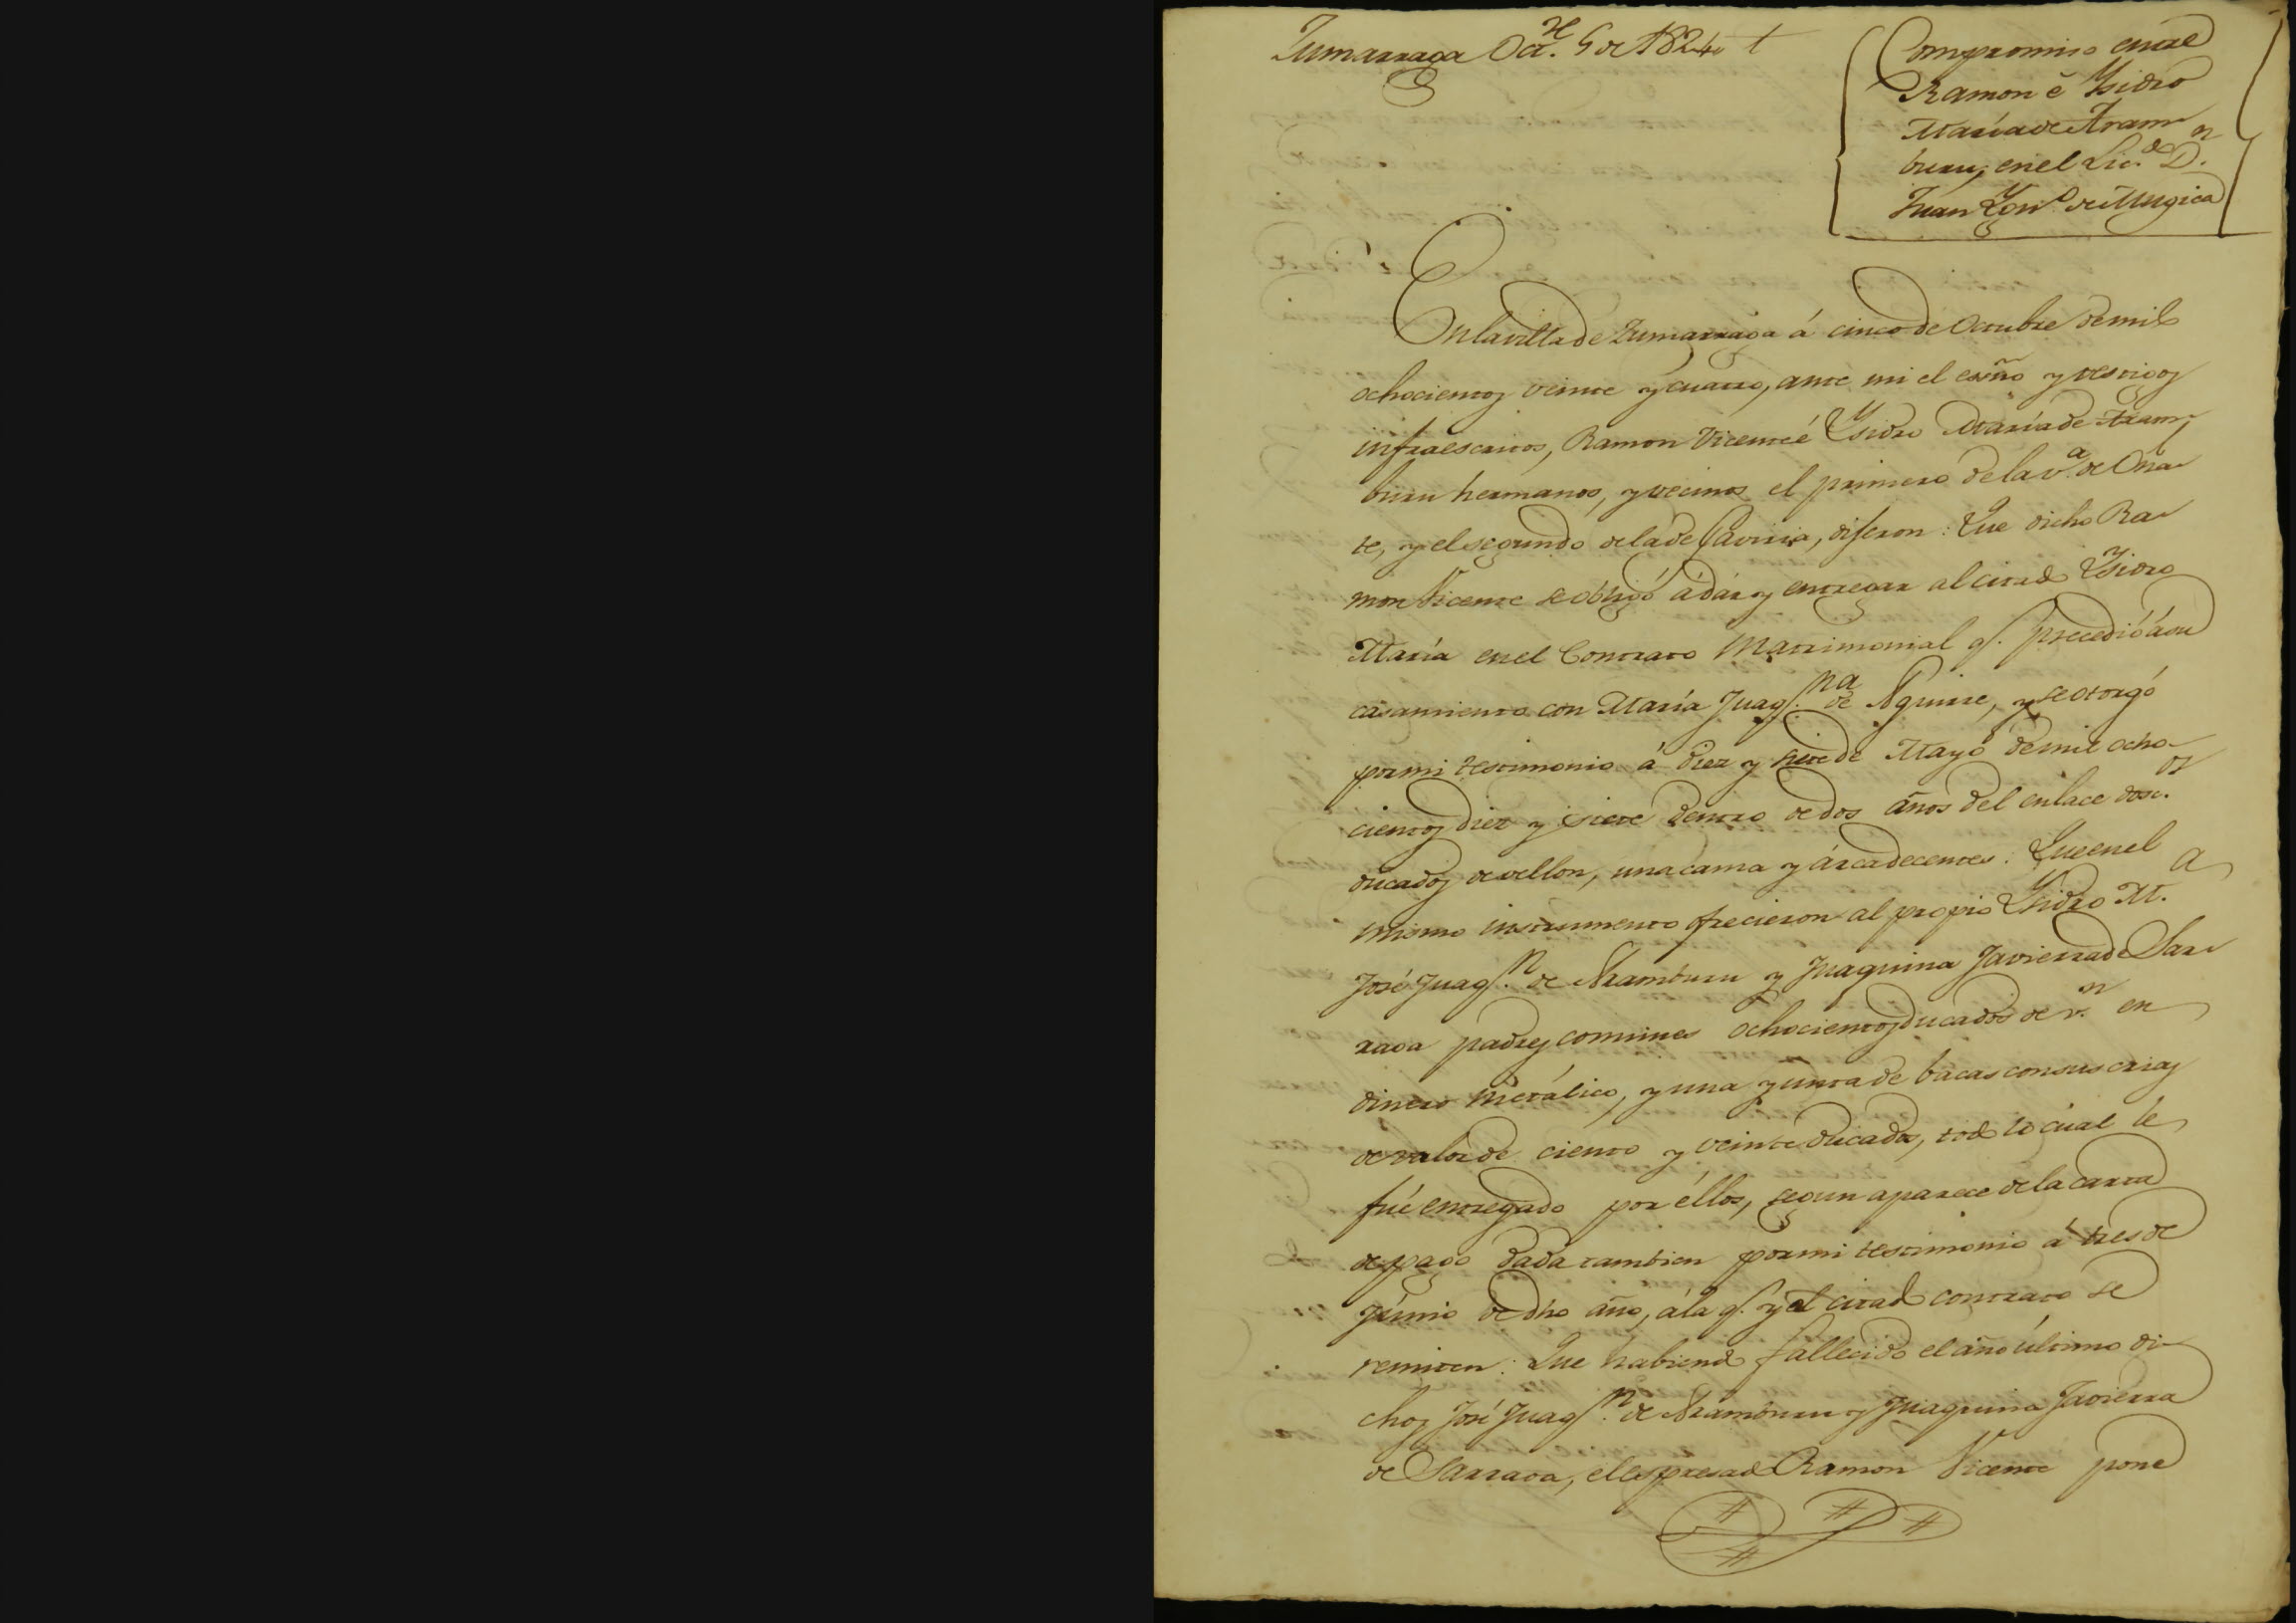 Zumarraga Oct.re 5 de 1824 t
Compromiso entre
Ramon é Ysidro
María de Aram-
buru, en el Lic.do D.n
Juan Ygn.o de Mugica
En la villa de Zumarraga á cinco de Octubre de mil
ochocientos veinte y cuatro, ante mi el esño y testigos
infraescritos, Ramon Vicente é Ysidro María de Aram-
buru hermanos, y vecinos el primero de la v.a de Oña-
te, y el segundo de la de Gaviria, dijeron: Que dicho Ra-
mon Vicente se obligó á dár y entregar al citado Ysidro
María en el Contrato Matrimonial q.e precedió á su
casamiento con María Juaq.na de Aguirre, y se otorgó
por mi testimonio á diez y siete de Mayo de mil ocho-
cientos diez y siete dentro de dos años del enlace dosc.os
ducados de vellon, una cama y árca decentes: Que en el
mismo instrumento ofrecieron al propio Ysidro M.a
José Juaq.n de Aramburu y Juaquina Javierra de Sar-
raoa padres comunes ochocientos ducados de v.n en
dinero metálico, y una yunta de bacas con sus crias
de valor de ciento y veinte ducados, todo lo cual le
fué entregado por éllos, segun aparece de la carta
de pago dada tambien por mi testimonio á tres de
Júnio de dho año, á la q.e y al citado contrato se
remiten: Que habiendo fallecido el año último di-
chos José Juaq.n de Aramburu y Juaquina Javierra
de Sarraoa, el espresado Ramon Vicente pone